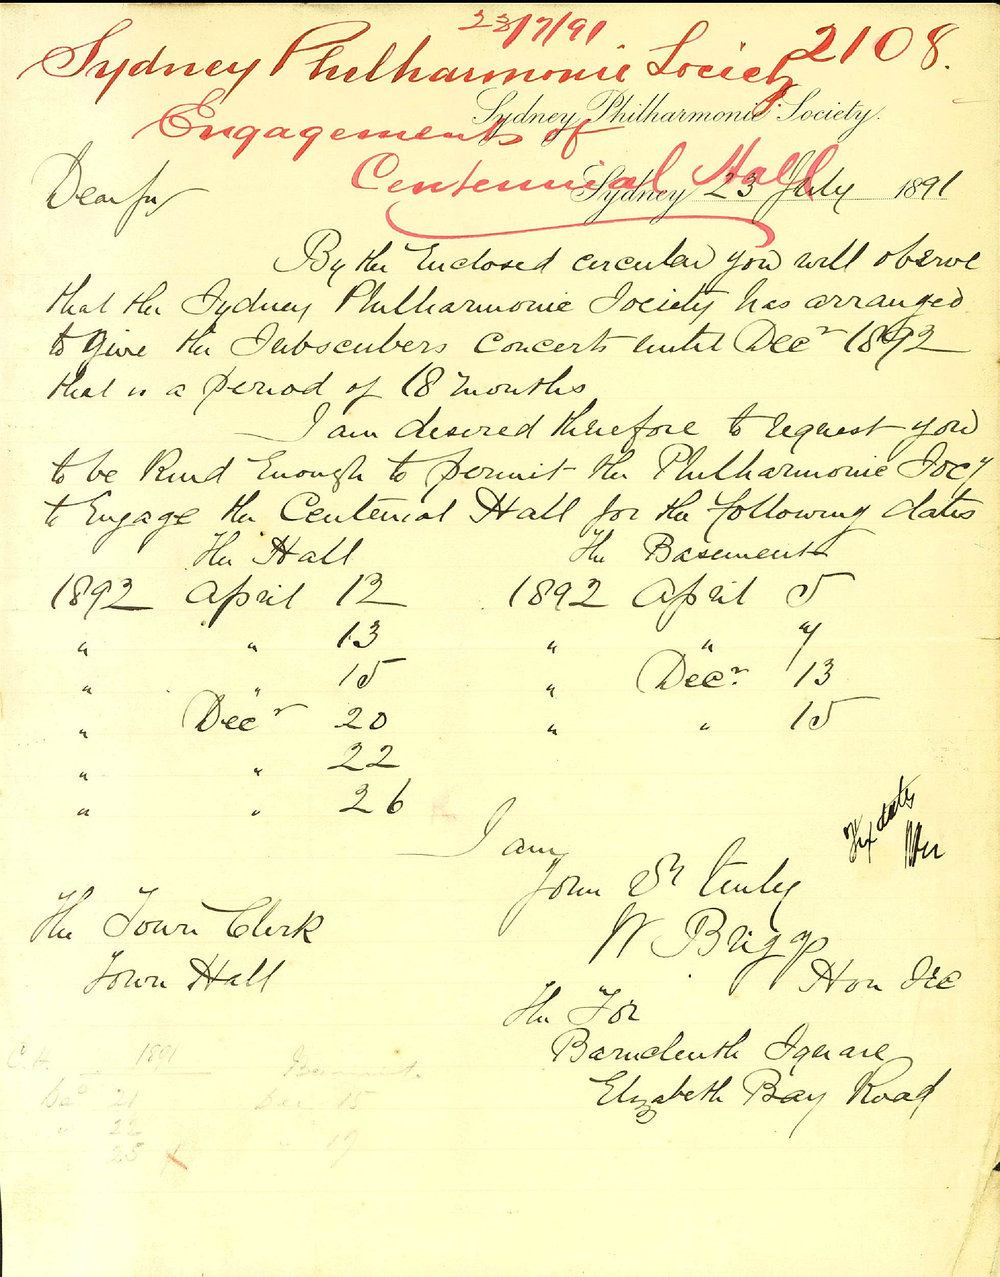 23/7/91
Sydney Philharmonic Society 2108.
Sydney Philharmonic Society.
Engagements of
Centennial Hall
Sydney 23 July 1891
Dear Sir
By the Enclosed circular you will observe
that the Sydney Philharmonic Society has arranged
to give the Subscribers Concerts until Decr 1892
that is a period of 18 months
I am desired therefore to request you
to be Kind Enough to permit the Philharmonic Socy
to Engage the Centenial Hall for the following dates
The Hall The Basement
1892 April 12 1892 April 5
" " 13 " " 7
" " 15 " Decr 13
" Decr 20 " " 15
" " 22
" " 26
Fix dates
I am
Yours
W Briggs
Hon Sec
The Town Clerk
Town Hall
The
Square
Elizabeth Bay Road
1891
21 15
22
25